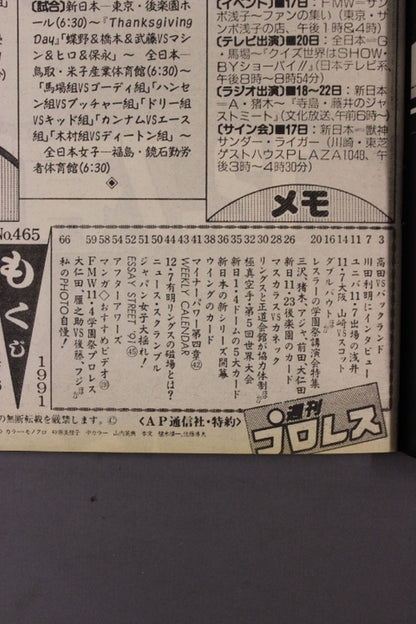 【試合】新日本―東京・後楽園ホール(6:30)〜『Thanksgiving
Day』「蝶野&橋本&武藤VSマシ
ン&ヒロ&保永」〜 全日本―
鳥取・米子産業体育館(6:30)〜
「馬場組VSゴーディ組」「ハンセ
ン組VSブッチャー組」「ドリー組
VSキッド組」「カンナムVSエース
組」「木村組VSディートン組」〜
全日本女子―福島・鏡石勤労
者体育館(6:30)
【イベント】■17日:FMW=サン
ボ浅子〜ファンの集い(東京・サ
ンボ浅子の店、午後1時&4時)
【テレビ出演】■20日:全日本=G
・馬場〜『クイズ世界はSHOW・
BYショーバイ!!』(日本テレビ系、
午後8時〜8時54分)
【ラジオ出演】■18〜22日:新日本
=A・猪木〜『寺島・藤井のジャ
ストミート』(文化放送、午前6時〜)
【サイン会】■17日:新日本=獣神
サンダー・ライガー(川崎・東芝
ゲストハウスPLAZA1040、午
後3時〜4時30分)
メモ
No.465
もくじ
1991
3 高田VSバックランド
7 川田利明にインタビュー
11 ユニバ11・7出場の浅井
14 11・7大阪 山崎VSスコット
16 ダブルバウトほか
20 レスラーの学園祭講演会特集
三沢、猪木、アジャ、前田、大仁田
26 新日11・23後楽園のカード
28 マスカラスVSカネック
31 リングスと正道会館が協力体制ほか
35 極真空手・第5回世界大会
36 新日1・4ドームの5大カード
38 新日本の新シリーズ開幕
39 ウイングのカード
41 マイナー・パワー第四章㊷
42 WEEKLY CALENDAR
44 12・7有明リングスの磁場とは?
50 ニュース・スクランブル
51 ジャパン女子大揺れ!
52 ESSAY STREET '91㊺
54 アフターアワーズ
58 マンガ◇おすすめビデオ⑲
59 FMW11・4学園祭プロレス
60 大仁田、雁之助VS後藤、フジほか
66 私のPHOTO自慢!
の無断転載を厳禁します。©〈AP通信社・特約〉
週刊
プロレス